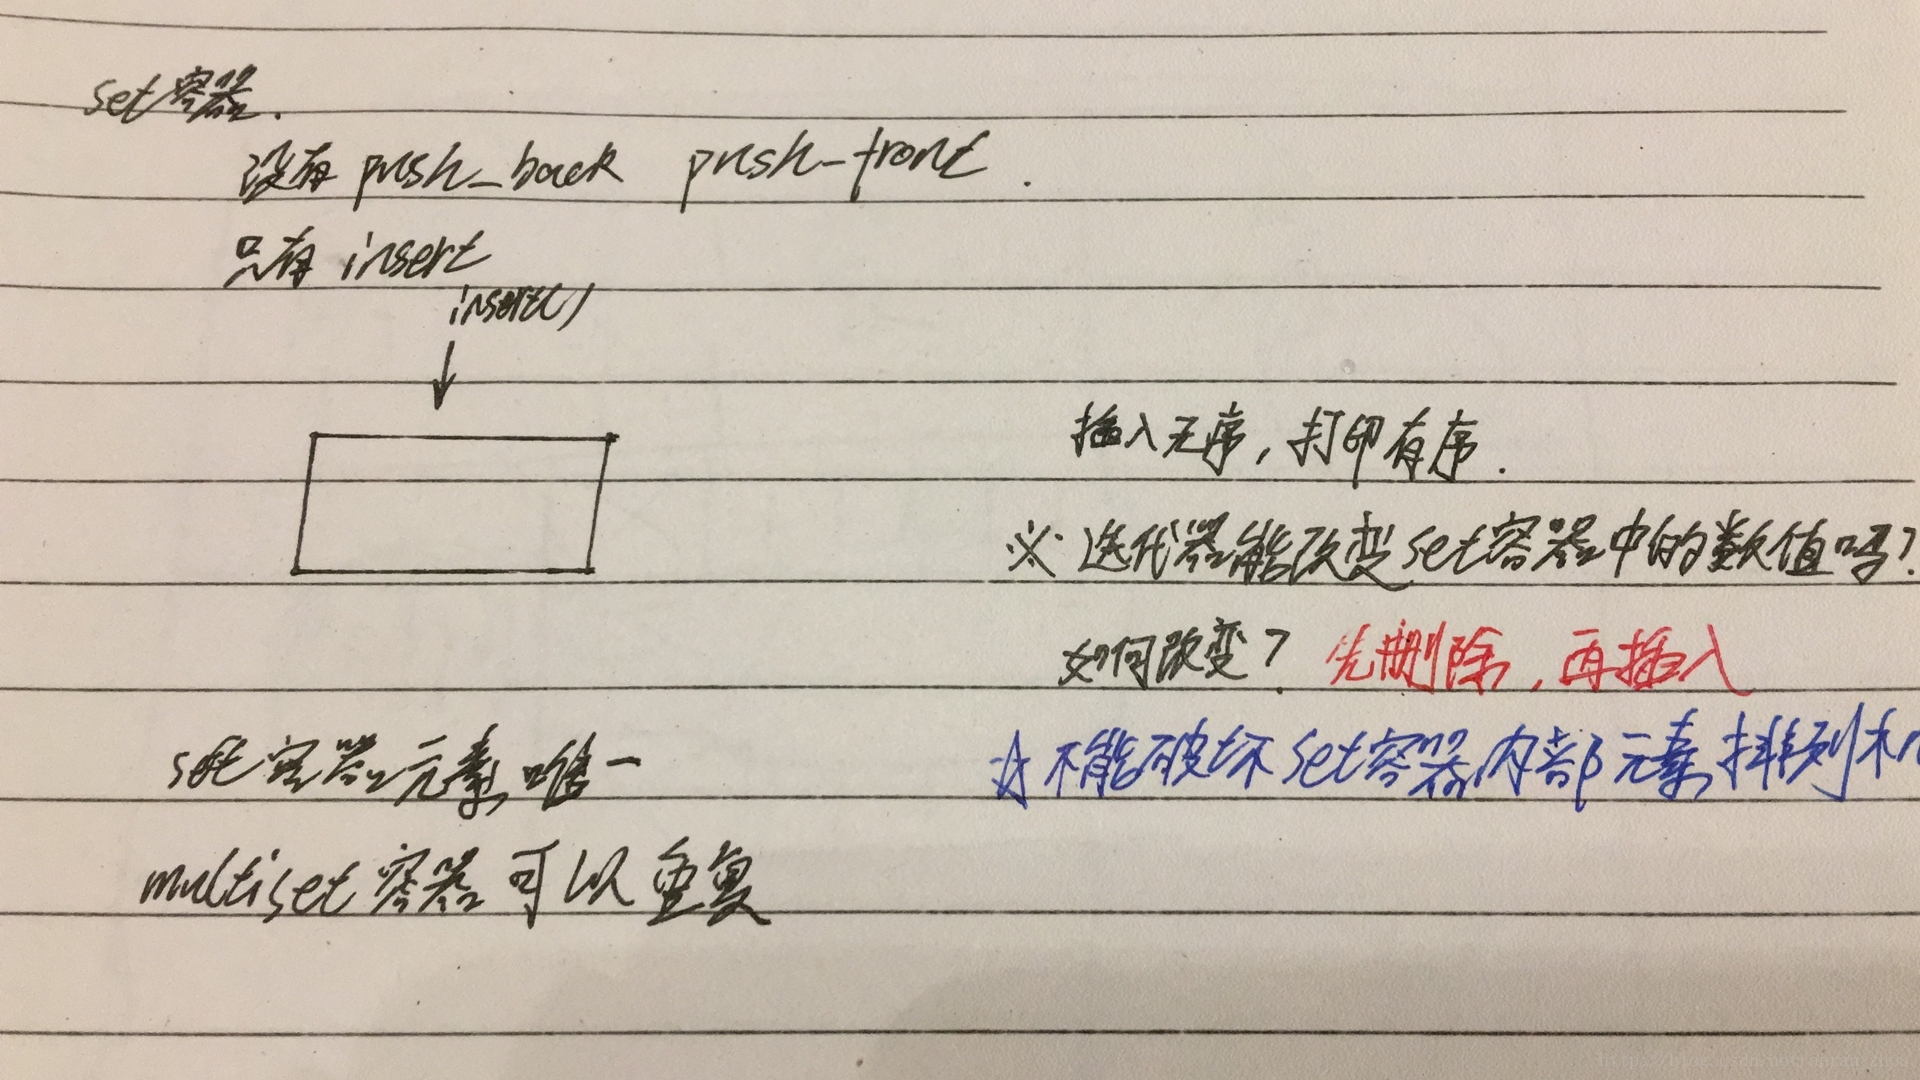 set容器.
没有 push_back push-front.
只有 insert
insert()
插入无序, 打印有序.
※ 迭代器能改变set容器中的数值吗?
如何改变? 先删除, 再插入
☆ 不能破坏set容器内部元素排列
set容器元素唯一
multiset容器可以重复